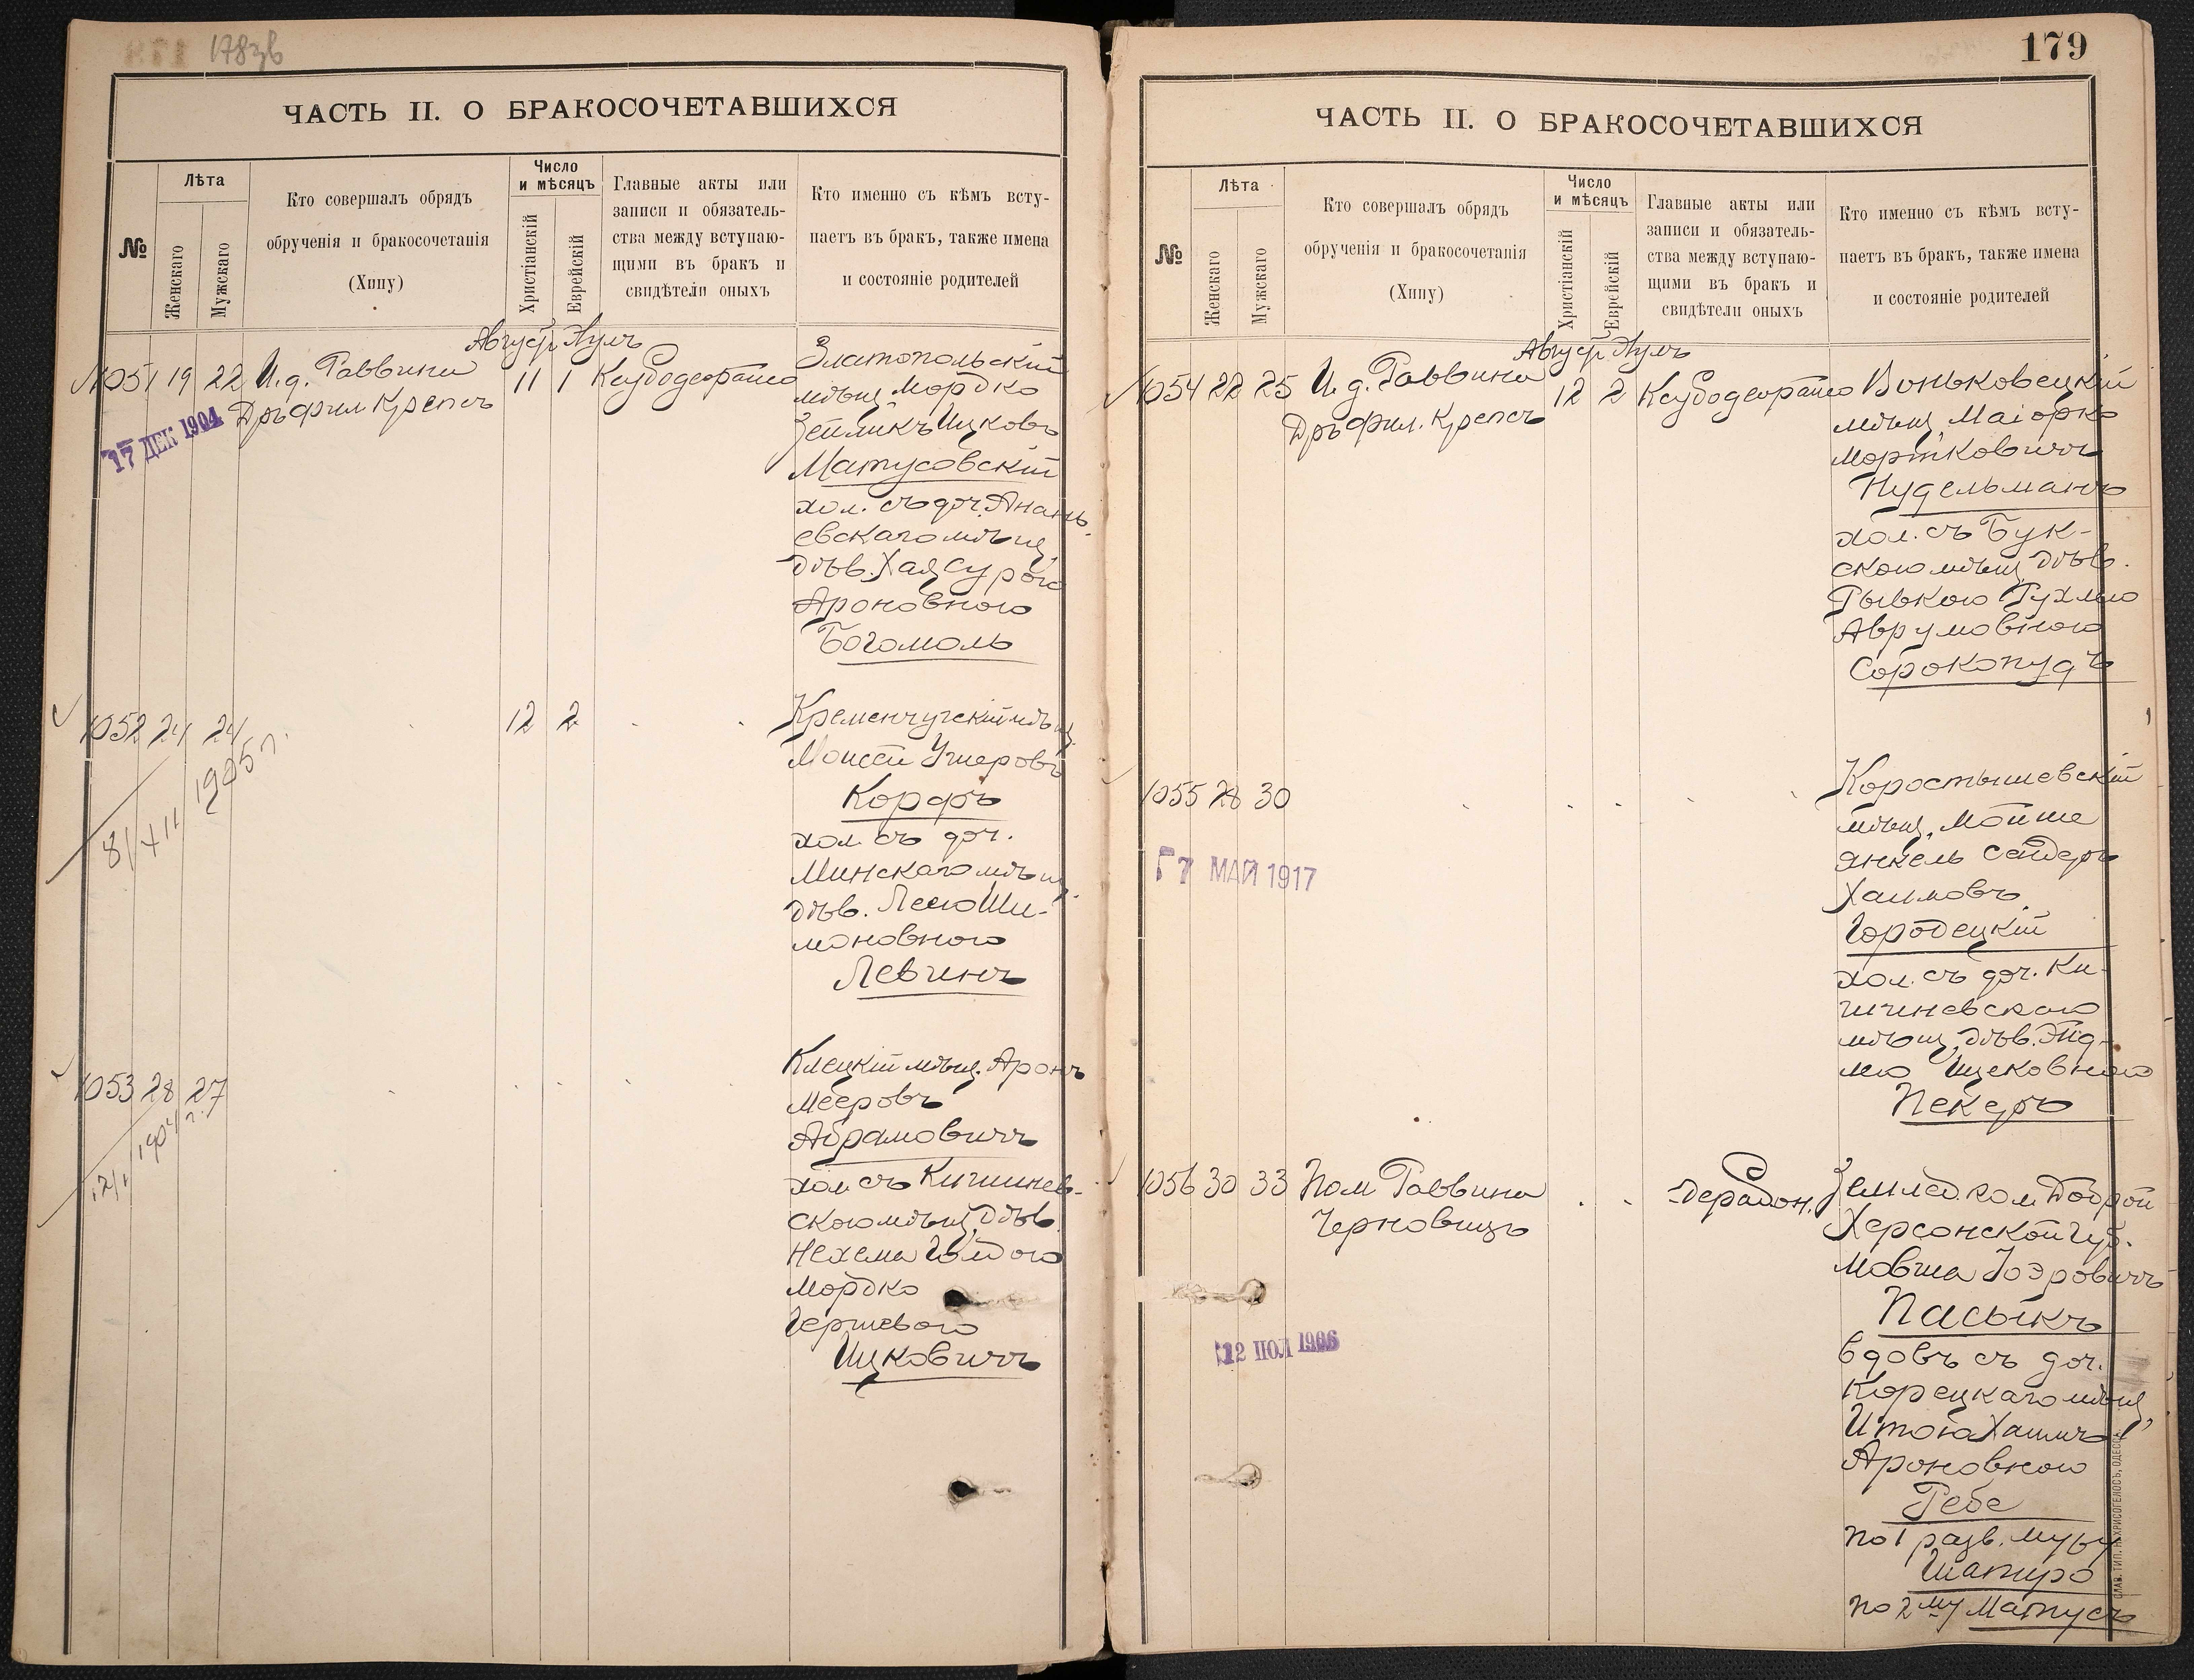 178зв
ЧАСТЬ II. О БРАКОСОЧЕТАВШИХСЯ
№
Лѣта
Женскаго
Мужскаго
Кто совершалъ обрядъ
обрученія и бракосочетанія
(Хипу)
Число
и мѣсяцъ
Христіанскій
Еврейскій
Главные акты или
записи и обязатель-
ства между вступаю-
щими въ бракъ и
свидѣтели оныхъ
Кто именно съ кѣмъ всту-
паетъ въ бракъ, также имена
и состояніе родителей
1051 19 22 И.д. Раввина
Дръ фил Крепсъ
17 ДЕК 1904
Август Элулъ
11 1
Златопольскій
мѣщ Мордко
Зейликъ Ицковъ
Матусовскій
хол. съ доч. Анань-
евскаго мѣщ.
дѣв. Хая Сурою
Ароновною
Богомоль
1052 24 24
1905 г.
12 2
Кременчугскій мѣщ.
Моисей Ушеровъ
Корфъ
хол. съ доч.
Минскаго мѣщ.
дѣв. Лесю Ши-
моновною
Левинъ
1053 28 27
Клецкій мѣщ. Аронъ
Мееровъ
Абрамовичъ
хол. съ Кишинев-
скою мѣщ. дѣв.
Нехема Голдою
Мордко
Гершевою
Ицковичъ
179
ЧАСТЬ II. О БРАКОСОЧЕТАВШИХСЯ
№
Лѣта
Женскаго
Мужскаго
Кто совершалъ обрядъ
обрученія и бракосочетанія
(Хипу)
Число
и мѣсяцъ
Христіанскій
Еврейскій
Главные акты или
записи и обязатель-
ства между вступаю-
щими въ бракъ и
свидѣтели оныхъ
Кто именно съ кѣмъ всту-
паетъ въ бракъ, также имена
и состояніе родителей
1054 22 25 И.д. Раввина
Дръ фил. Крепсъ
Август Элулъ
12 2
Воньковецкій
мѣщ. Маіорко
Мортковичъ
Нудельманъ
хол. съ Бук-
скою мѣщ. дѣв.
Рывкою Рухлею
Аврумовною
Сорокопудъ
1055 28 30
17 МАЙ 1917
Коростышевскій
мѣщ. Мойше
Янкель Сендеръ
Хаимовъ
Городецкій
хол. съ доч. Ки-
шиневскаго
мѣщ. дѣв. Эйд-
лею Ицековною
Пекеръ
1056 30 33 Пом Раввина
Черновицъ
12 ІЮЛ 1906
Землед. кол. Доброй
Херсонской губ.
Мовша
Пасыкъ
вдовъ съ доч.
Корецкаго мѣщ.
Ароновною
Ребе
по 1 разв. мужу
Шапиро
по 2му Матусъ
СЛАВ. ТИП. Н. ХРИСОГЕЛОСЪ, ОДЕССА